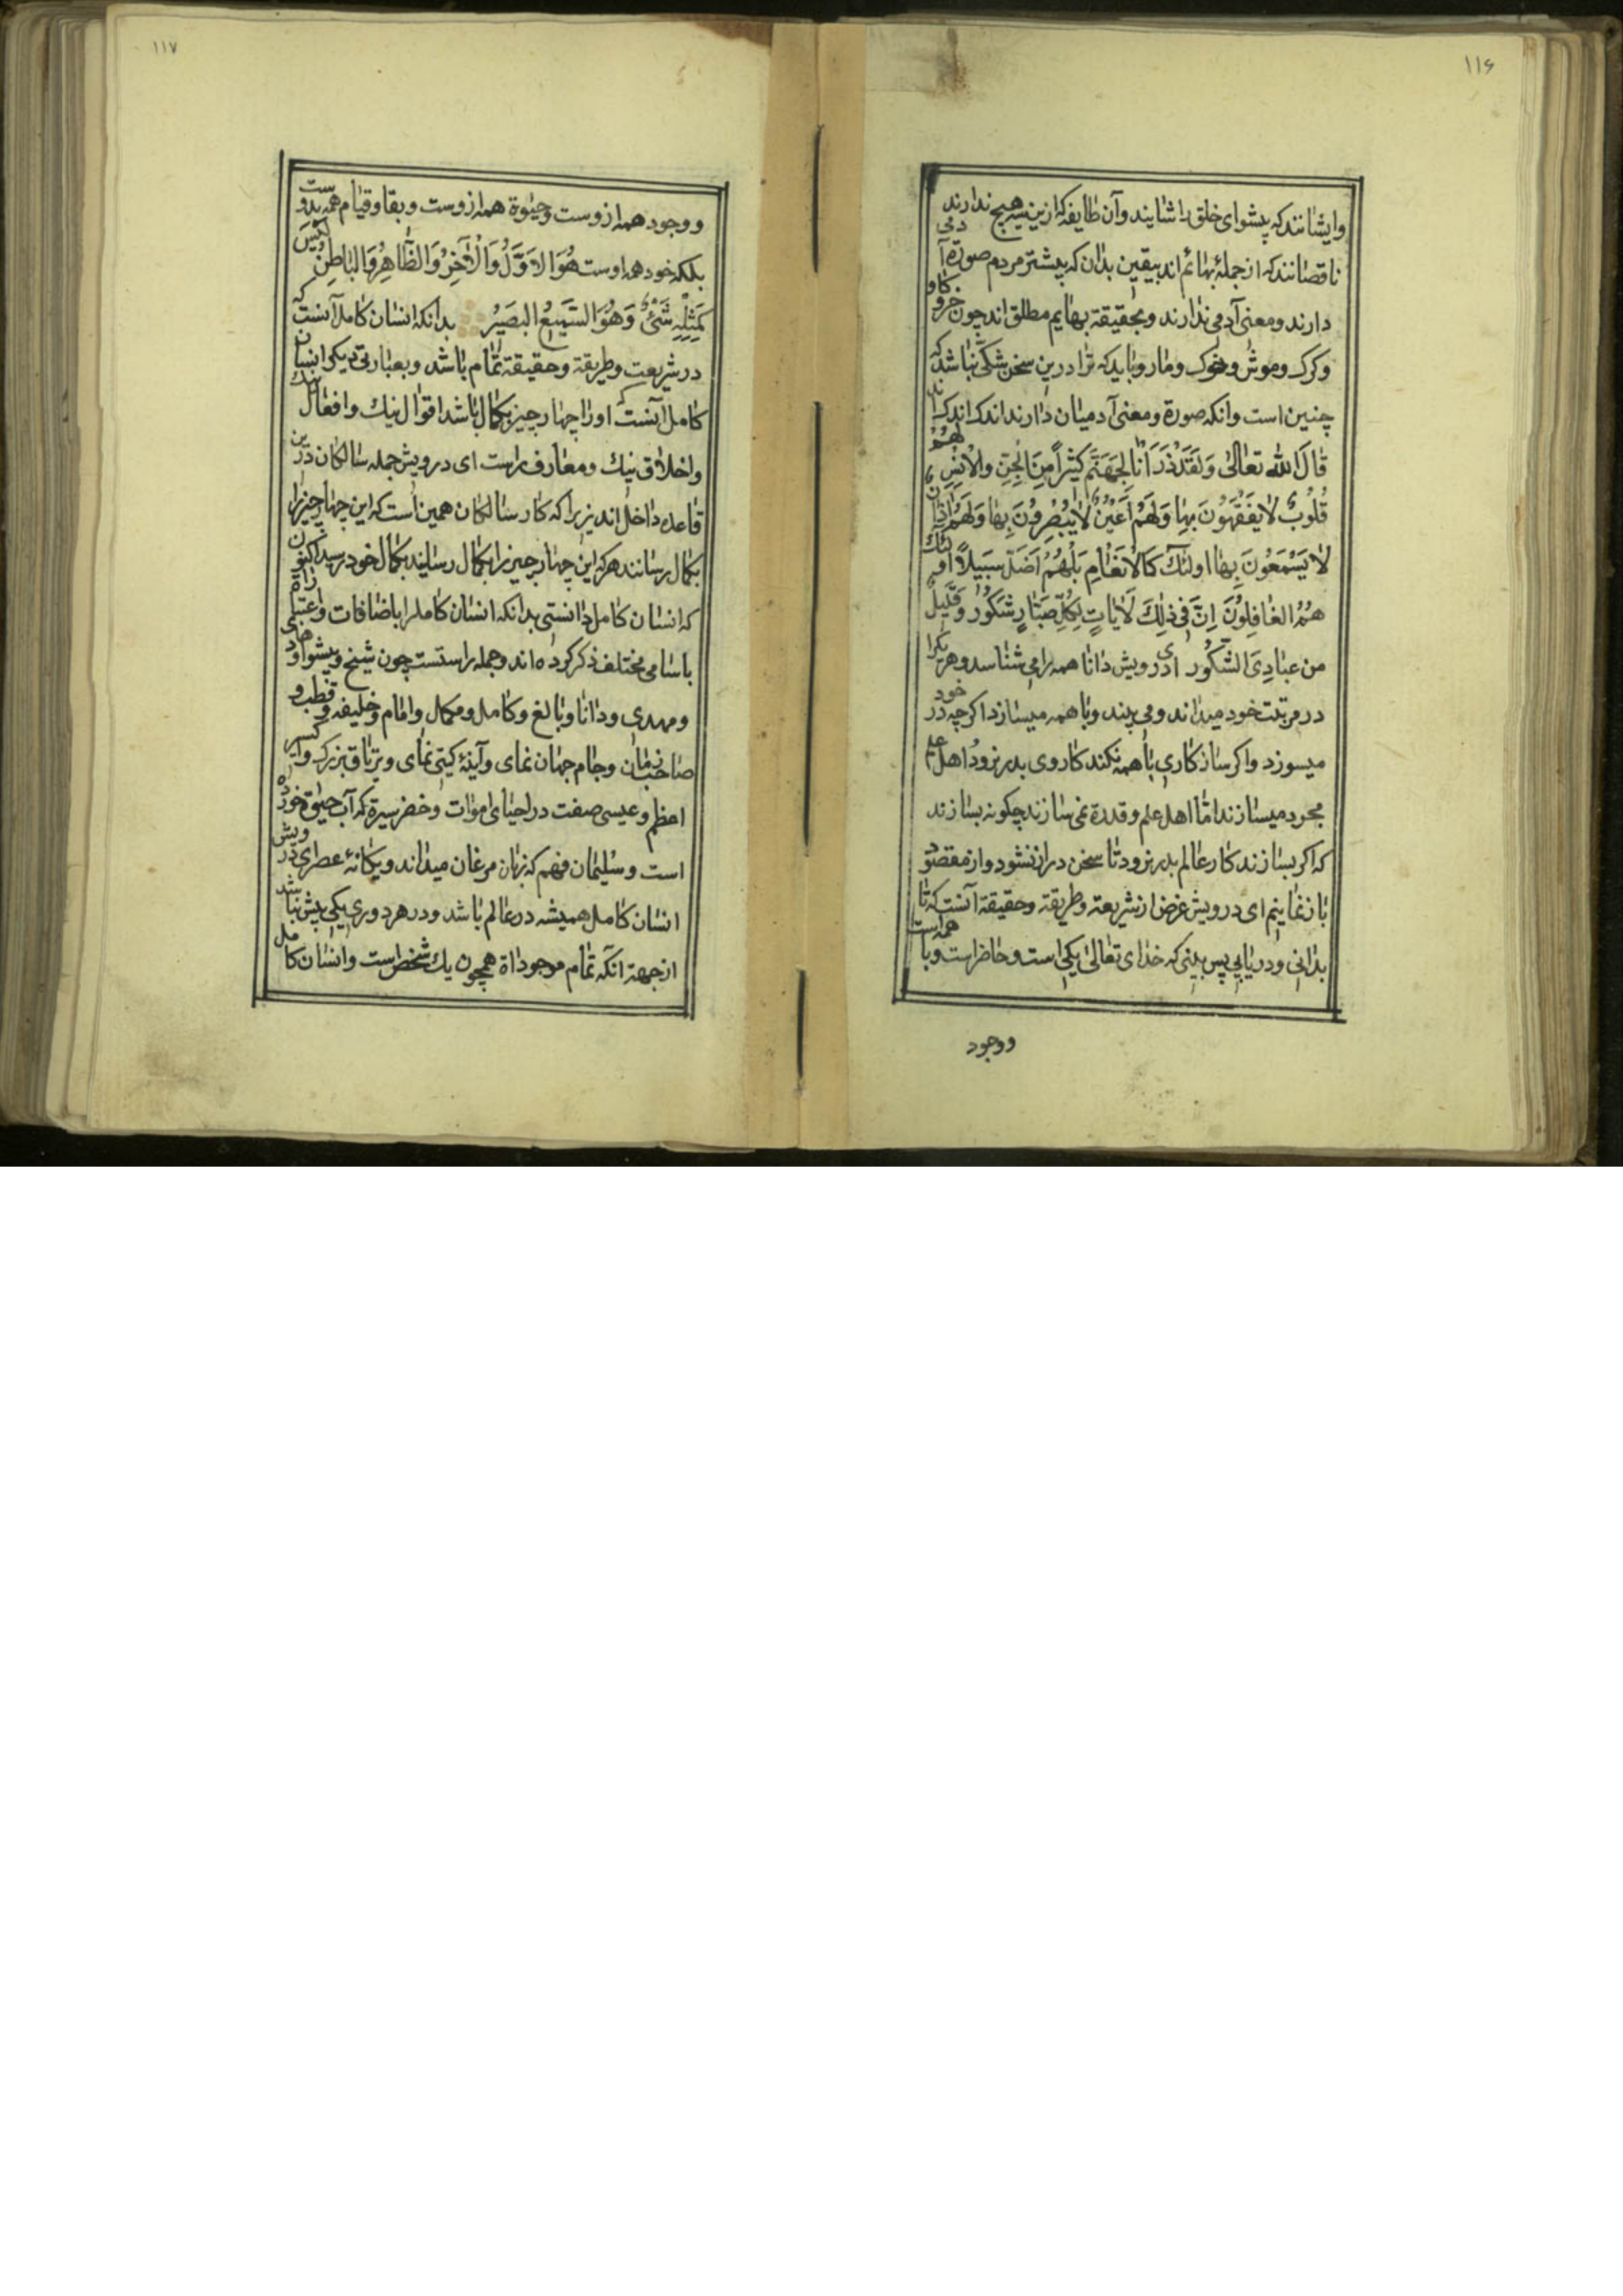 ۱۱۶
وایشانند که پیشوای خلق را شایند وآن طایفه که ازین سه هیچ ندارند
ناقصانند که از جملهٔ بهائم اند بیقین بدان که بیشتر مردم صورة آدمی
دارند ومعنی آدمی ندارند وبحقیقة بهایم مطلق اند چون خرو کاو
وکرک وموش وخوک ومار وباید که ترا درین سخن شکی نباشد که
چنین است وانکه صورة ومعنی آدمیان دارند اندک اندک اند
قَالَ الله تعالیٰ وَلَقَدْ ذَرَأنا لِجَهَنَّم کَثیراً مِنَ الجِنِّ والاِنْسِ لَهُمْ
قُلُوبٌ لا یَفْقَهُونَ بِهٰا وَلَهُمْ اَعْیُنٌ لا یُبْصِرُونَ بِهٰا وَلَهُمْ اٰذانٌ
لا یَسْمَعُونَ بِهٰا اولئکَ کَالاَنْعٰامِ بَلْ هُمْ اَضَلُّ سَبیلاً اولئک
هُمُ الغٰافِلُونَ اِنَّ فی ذلِکَ لَاٰیاتٍ لِکُلِّ صَبّارٍ شَکُورٍ وَقَلیلٌ
من عِبادِیَ الشَّکُور ای درویش دانا همه را می شناسد وهر یکرا
در مرتبت خود میداند ومی بیند وبا همه میسازد اکرچه در خود
میسوزد واکر ساز کاری با همه نکند کار وی بدر نرود اهل علم
مجرد میسازند اما اهل علم وقدرة نمی سازند چکونه بسازند
که اکر بسازند کار عالم بدر نرود تا سخن دراز نشود واز مقصود
باز نمانیم ای درویش غرض از شریعة وطریقة وحقیقة آنست که تا
بدانی ودریابی پس ببینی که خدای تعالیٰ یکی است وحاضر است وبا همه است
ووجود
۱۱۷
ووجود همه ازوست وحیٰوة همه ازوست وبقا وقیام همه بدوست
بلکه خود همه اوست هُوَ الاَوَّلُ وَالْاٰخِرُ وَالظّاهِرُ وَالبٰاطِنُ لَیْسَ
کَمِثْلِهِ شَیْئٌ وَهُوَ السَّمیعُ البَصیرُ بدانکه انسان کامل آنست که
در شریعت وطریقة وحقیقة تمام باشد وبعبارتی دیکر انسان
کامل آنست که اورا چهار چیز بکمال باشد اقوال نیک وافعال نیک
واخلاق نیک ومعارف راست ای درویش جمله سالکان درین
قاعده داخل اند زیرا که کار سالکان همین است که این چهار چیز را
بکمال رسانند هر که این چهار چیز را بکمال رسانید بکمال خود رسید اکنون
که انسان کامل دانستی بدانکه انسان کامل را باضافات واعتبارات
باسامی مختلف ذکر کرده اند وجمله راستست چون شیخ وپیشوا وهادی
ومهدی ودانا وبالغ وکامل ومکمل وامام وخلیفه وقطب و
صاحب زمان وجام جهان نمای وآینهٔ کیتی نمای وتریاق بزرک واکسیر
اعظم وعیسی صفت در احیای اموات وخضر سیرة که آب حیٰوة خورده
است وسلیمان فهم که زبان مرغان میداند ویکانهٔ عصر ای درویش
انسان کامل همیشه در عالم باشد ودر هر دوری یکی بیش نباشد
از جهة انکه تمام موجوداة همچون یک شخص است وانسان کامل